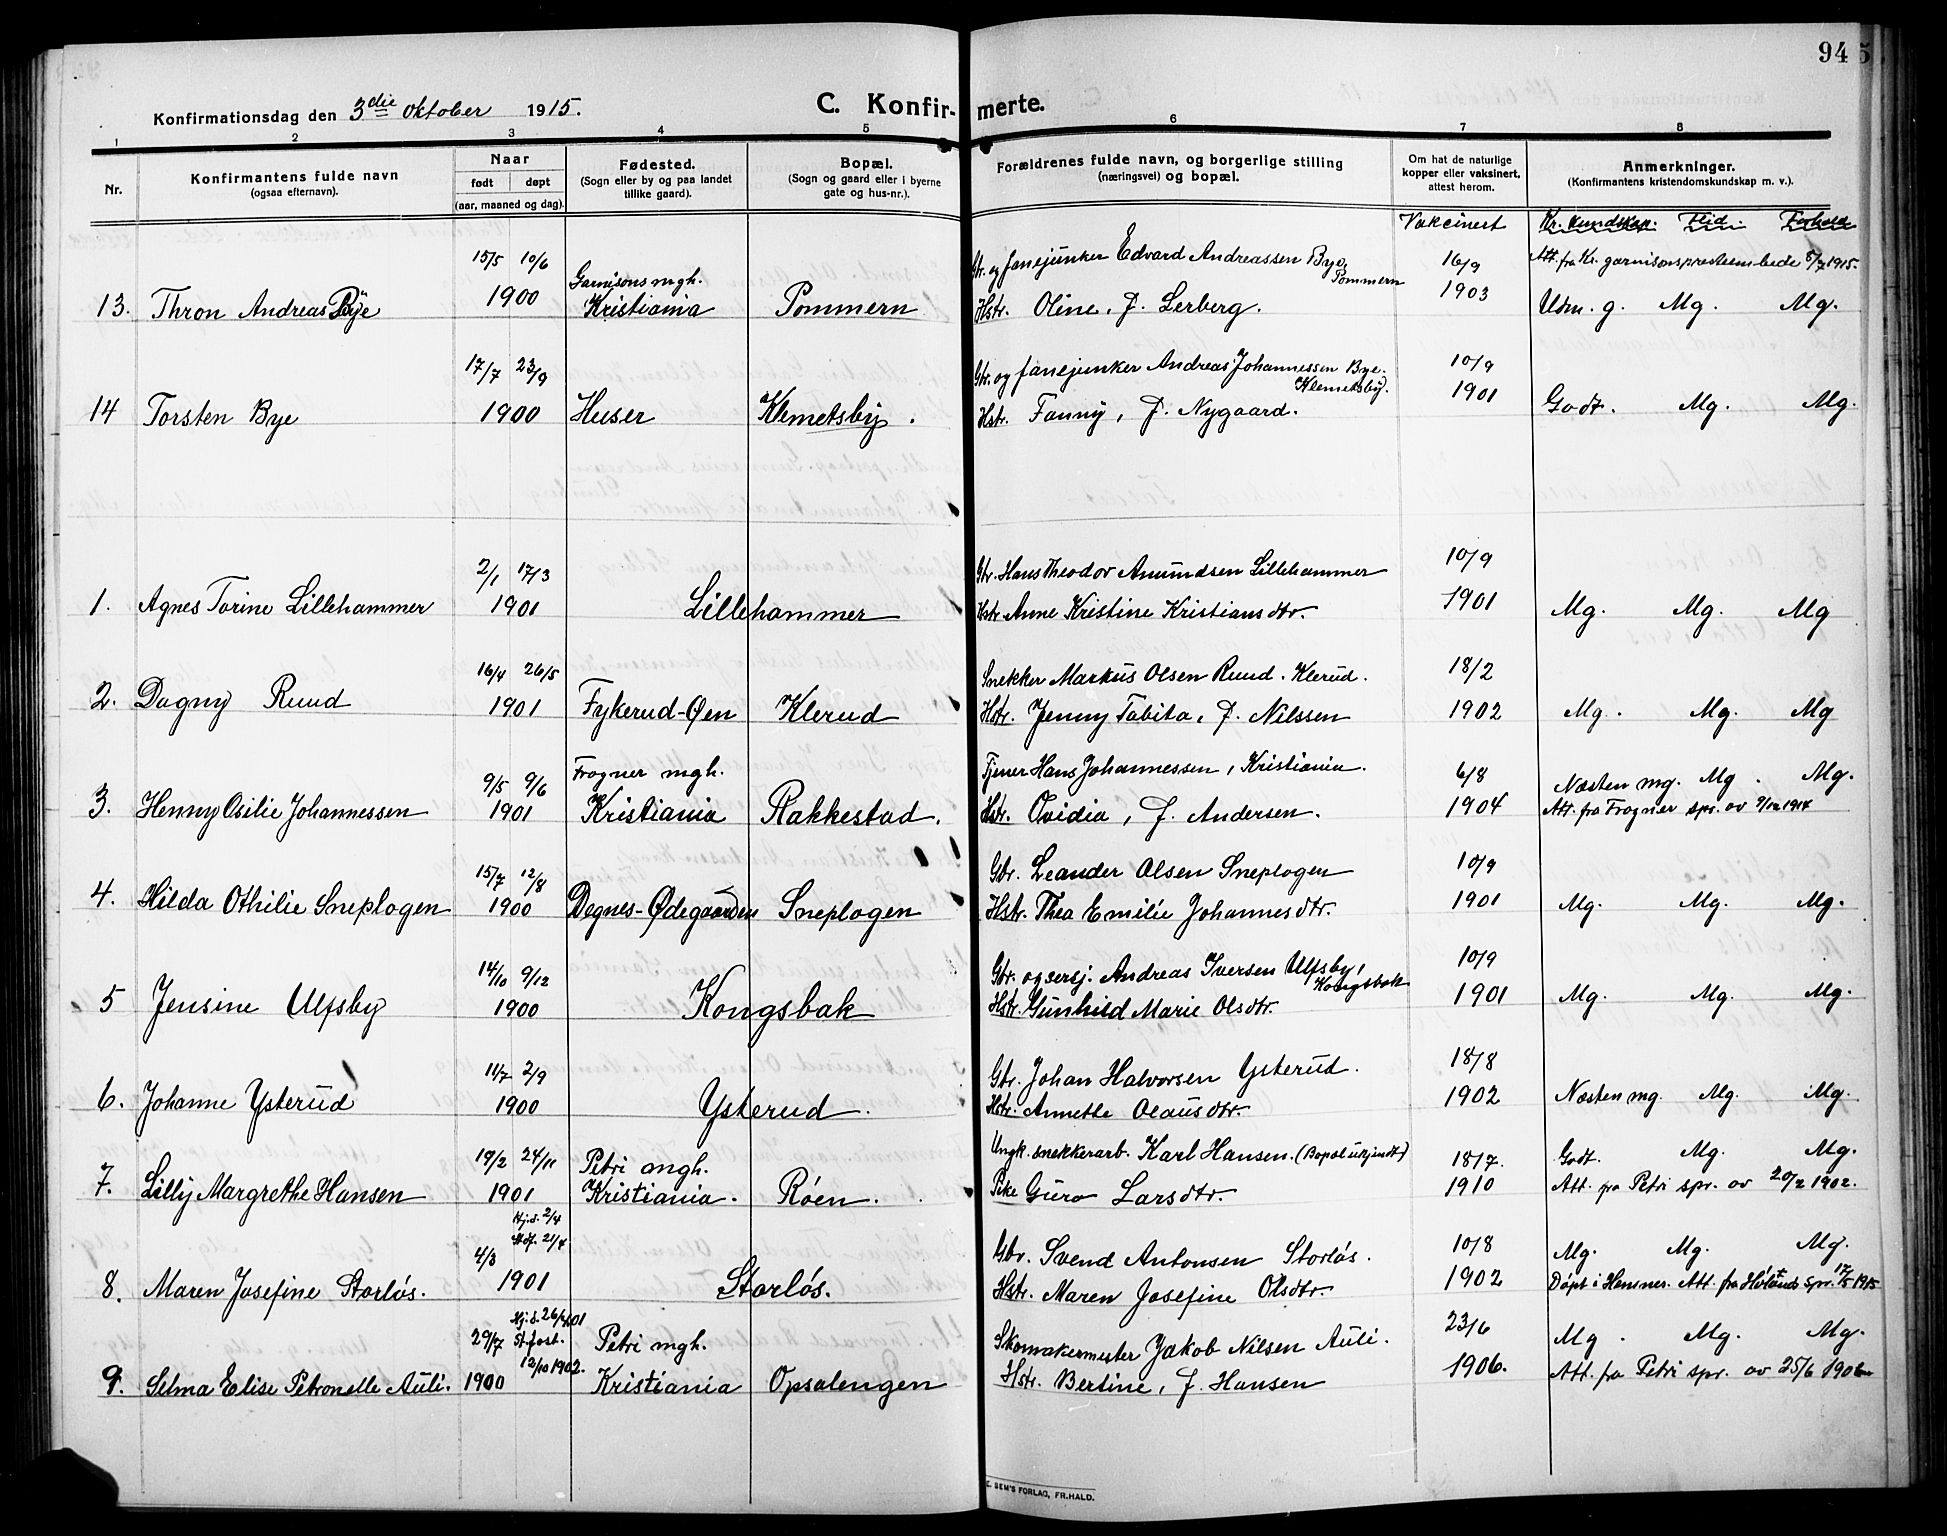 94
5
Konfirmationsdag den 3die oktober 1915.
C. Konfir-merte.
1 2 3 4 5 6 7 8
Nr.
Konfirmantens fulde navn
(ogsaa efternavn).
Naar
født døpt
(aar, maaned og dag).
Fødested.
(Sogn eller by og paa landet
tillike gaard).
Bopæl.
(Sogn og gaard eller i byerne
gate og hus-nr.).
Forældrenes fulde navn, og borgerlige stilling
(næringsvei) og bopæl.
Om hat de naturlige
kopper eller vaksinert,
attest herom.
Anmerkninger.
(Konfirmantens kristendomskundskap m. v.).
Vakcinert Kr. kundskap. Flid. Forhold
15/5 10/6 Garnisons mgh. Gbr. og fanejunker Edvard Andreassen Bye, Pommern 16/9 Att. fra Kr. garnisonsprestembede 5/7 1915.
13. Thron Andreas Bye 1900 Kristiania Pommern Hstr. Oline, f. Lerberg. 1903 Udm. g. Mg. Mg.
17/7 23/9 Gbr. og fanejunker Andreas Johannessen Bye. Klemetsby. 10/9
14 Torsten Bye 1900 Huser Klemetsby. Hstr. Fanny, f. Nygaard. 1901 Godt. Mg. Mg.
2/1 17/3 Gbr. Hans Theodor Amundsen Lillehammer 10/9
1. Agnes Torine Lillehammer 1901 Lillehammer Hstr. Anne Kristine Kristiansdtr. 1901 Mg. Mg. Mg
16/4 26/5 Snekker Markus Olsen Ruud. Klerud. 18/2
2. Dagny Ruud 1901 Fykerud-Øen Klerud Hstr. Jenny Tabita, f. Nilssen 1902 Mg. Mg. Mg
9/5 9/6 Frogner mgh. Tjener Hans Johannessen, Kristiania. 6/8 Næsten mg. Mg. Mg.
3. Henny Osilie Johannessen 1901 Kristiania Rakkestad. Hstr. Ovidia, f. Andersen. 1904 Att. fra Frogner spr. av 9/12 1914
15/7 12/8 Gbr. Leander Olsen Sneplogen 10/9
4. Hilda Othilie Sneplogen 1900 Degnes-Ødegaarden Sneplogen Hstr. Thea Emilie Johannesdtr. 1901 Mg. Mg. Mg.
14/10 9/12 Gbr. og sersj. Andreas Iversen Ulfsby, Kongsbak 10/9
5 Jensine Ulfsby 1900 Kongsbak Hstr. Gunhild Marie Olsdtr. 1901 Mg. Mg. Mg.
11/7 2/9 Gbr. Johan Halvorsen Ysterud. 18/8
6. Johanne Ysterud 1900 Ysterud. Hstr. Annette Olausdtr. 1902 Næsten mg. Mg. Mg.
19/2 24/11 Petri mgh. Ungk. snekkerarb. Karl Hansen. (Bopæl ukjendt) 18/7. Godt. Mg. Mg.
7. Lilly Margrethe Hansen 1901 Kristiania. Røen. Pike Guro Larsdtr. 1910 Att. fra Petri spr. av 20/2 1902.
4/3 Hj.d. 2/4 St.f. 21/4 Gbr. Svend Antonsen Storløs. 10/8 Mg. Mg. Mg.
8. Maren Josefine Storløs. 1901 Storløs. Hstr. Maren Josefine Olsdtr. 1902 Døpt i Hemnes. Att. fra Hølands spr. 17/5 1915
29/7 Hj.d. 26/4 01 St. fest. 12/10 1902. Petri mgh. Skomakermester Jakob Nilsen Auli. 23/6 Mg. Mg. Mg.
9. Selma Elise Petronelle Auli. 1900 Kristiania Opsalengen Hstr. Bertine, f. Hansen 1906. Att. fra Petri spr. av 25/6 1906
E. SEM'S FORLAG, FR.HALD.